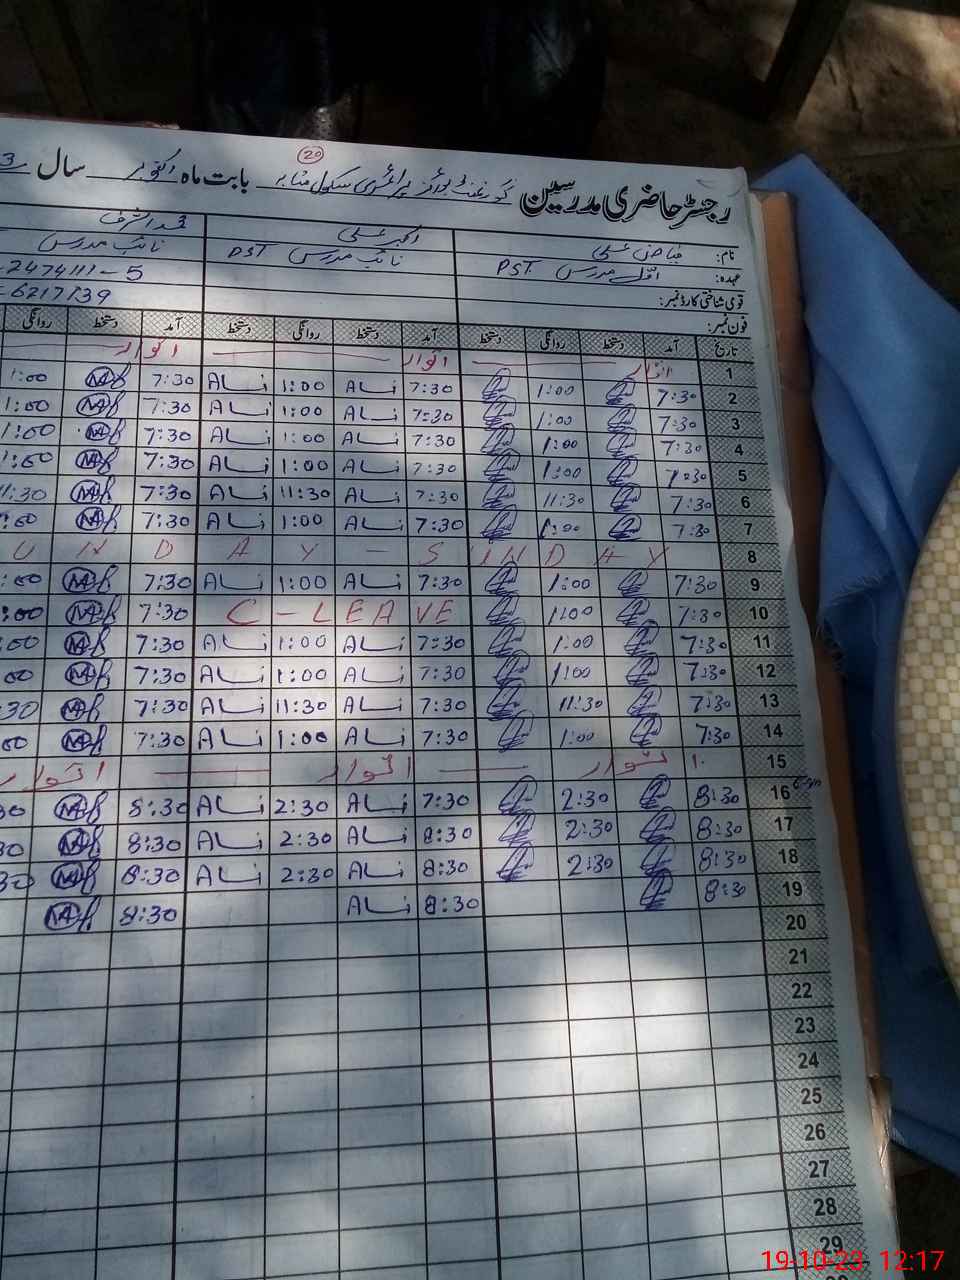 20
رجسٹر حاضری مدرسین گورنمنٹ بوائز پرائمری سکول بابت ماہ اکتوبر سال 3
نام: فیاض علی اکبر علی محمد اشرف
عہدہ: اوّل مدرس PST نائب مدرس PST نائب مدرس
قومی شناختی کارڈ نمبر: 2474111-5
فون نمبر: 6217739
تاریخ آمد دستخط روانگی دستخط آمد دستخط روانگی دستخط آمد دستخط روانگی
1 اتوار اتوار اتوار
2 7:30 1:00 7:30 ALi 1:00 ALi 7:30 1:00
3 7:30 1:00 7:30 ALi 1:00 ALi 7:30 1:00
4 7:30 1:00 7:30 ALi 1:00 ALi 7:30 1:00
5 7:30 1:00 7:30 ALi 1:00 ALi 7:30 1:00
6 7:30 11:30 7:30 ALi 11:30 ALi 7:30 11:30
7 7:30 1:00 7:30 ALi 1:00 ALi 7:30 :00
8 U N D A Y - S U N D A Y
9 7:30 1:00 7:30 ALi 1:00 ALi 7:30 :00
10 7:30 1:00 C-LEAVE 7:30 :00
11 7:30 1:00 7:30 ALi 1:00 ALi 7:30 :00
12 7:30 1:00 7:30 ALi 1:00 ALi 7:30 00
13 7:30 11:30 7:30 ALi 11:30 ALi 7:30 :30
14 7:30 1:00 7:30 ALi 1:00 ALi 7:30 00
15 اتوار اتوار اتوار
16 8:30 2:30 7:30 ALi 2:30 ALi 8:30 30
17 8:30 2:30 8:30 ALi 2:30 ALi 8:30 30
18 8:30 2:30 8:30 ALi 2:30 ALi 8:30 30
19 8:30 8:30 ALi 8:30
20
21
22
23
24
25
26
27
28
29
19-10-23 12:17